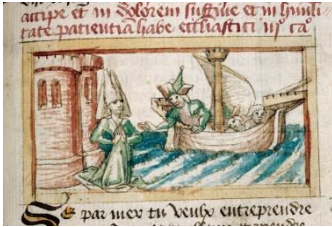 accipe et in dolorem sustine et in humili
tate patientiā habe eccliastici ijº caº
Se par mer tu veulx entreprendre